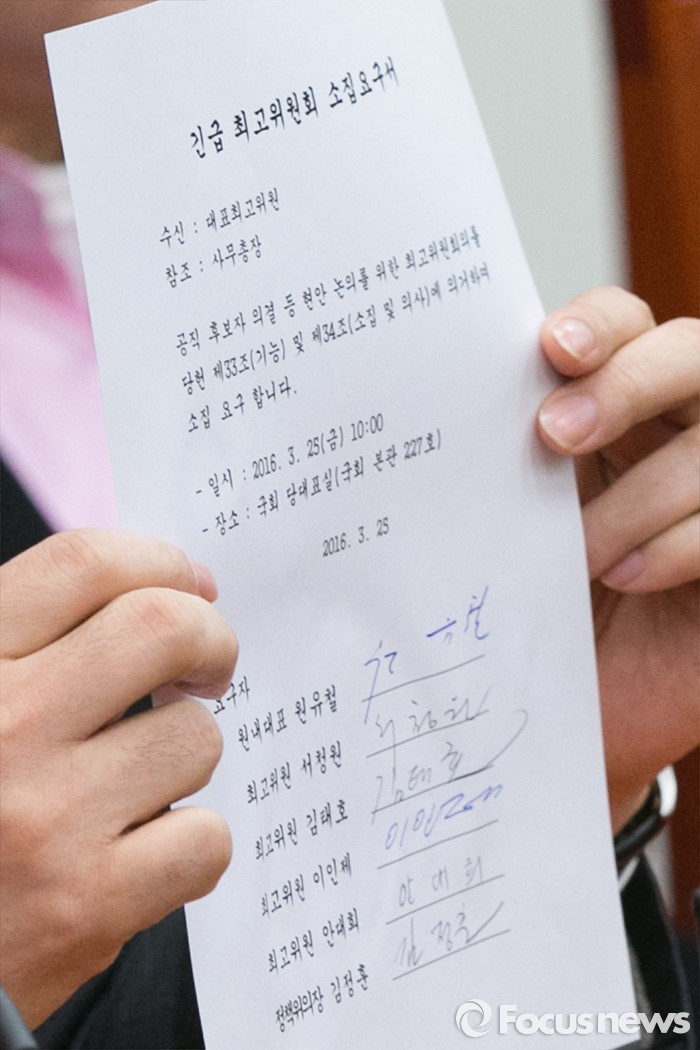 긴급 최고위원회 소집요구서
수신 : 대표최고위원
참조 : 사무총장
공직 후보자 의결 등 현안 논의를 위한 최고위원회의를
당헌 제33조(기능) 및 제34조(소집 및 의사)에 의거하여
소집 요구 합니다.
- 일시 : 2016. 3. 25(금) 10:00
- 장소 : 국회 당대표실(국회 본관 227호)
2016. 3. 25
요구자
원내대표 원유철
최고위원 서청원
최고위원 김태호 김태호
최고위원 이인제 이인제
최고위원 안대희 안대희
정책위의장 김정훈 김정훈
Focusnews